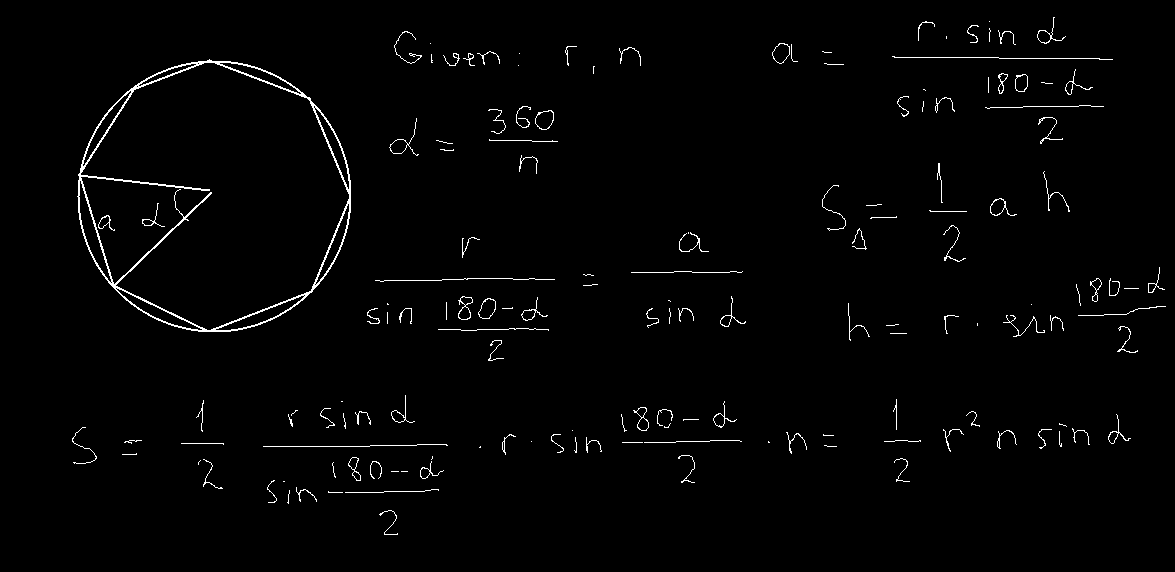 Given: r, n
α = 360/n
a α
r / sin (180-α)/2 = a / sin α
a = r · sin α / sin (180-α)/2
S△ = 1/2 a h
h = r · sin (180-α)/2
S = 1/2 r sin α / sin (180-α)/2 · r · sin (180-α)/2 · n = 1/2 r² n sin α